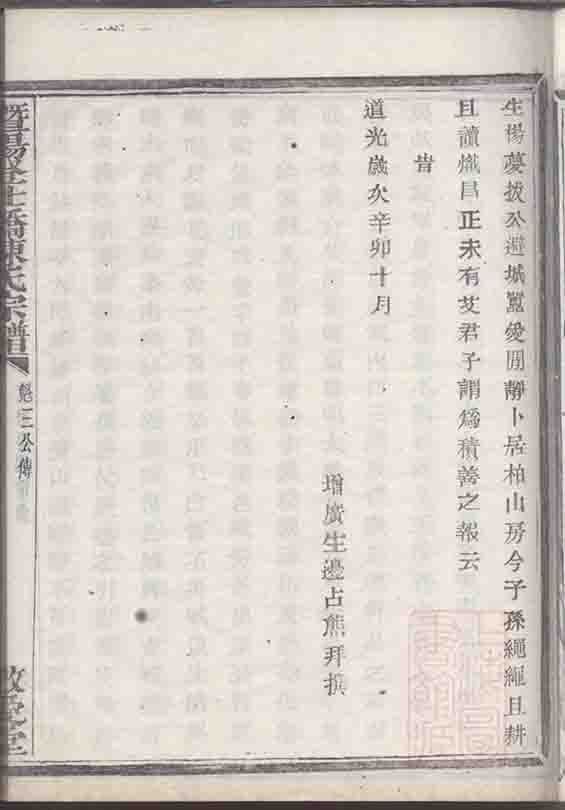 生楊蔂拔公避城囂愛閒靜卜居柏山房今子孫繩繩且耕
且讀熾昌正未有艾君子謂爲積善之報云
旹
道光歲次辛卯十月
增廣生邊占熊拜撰
暨陽 橋陳氏宗譜
魁三公傳
堂